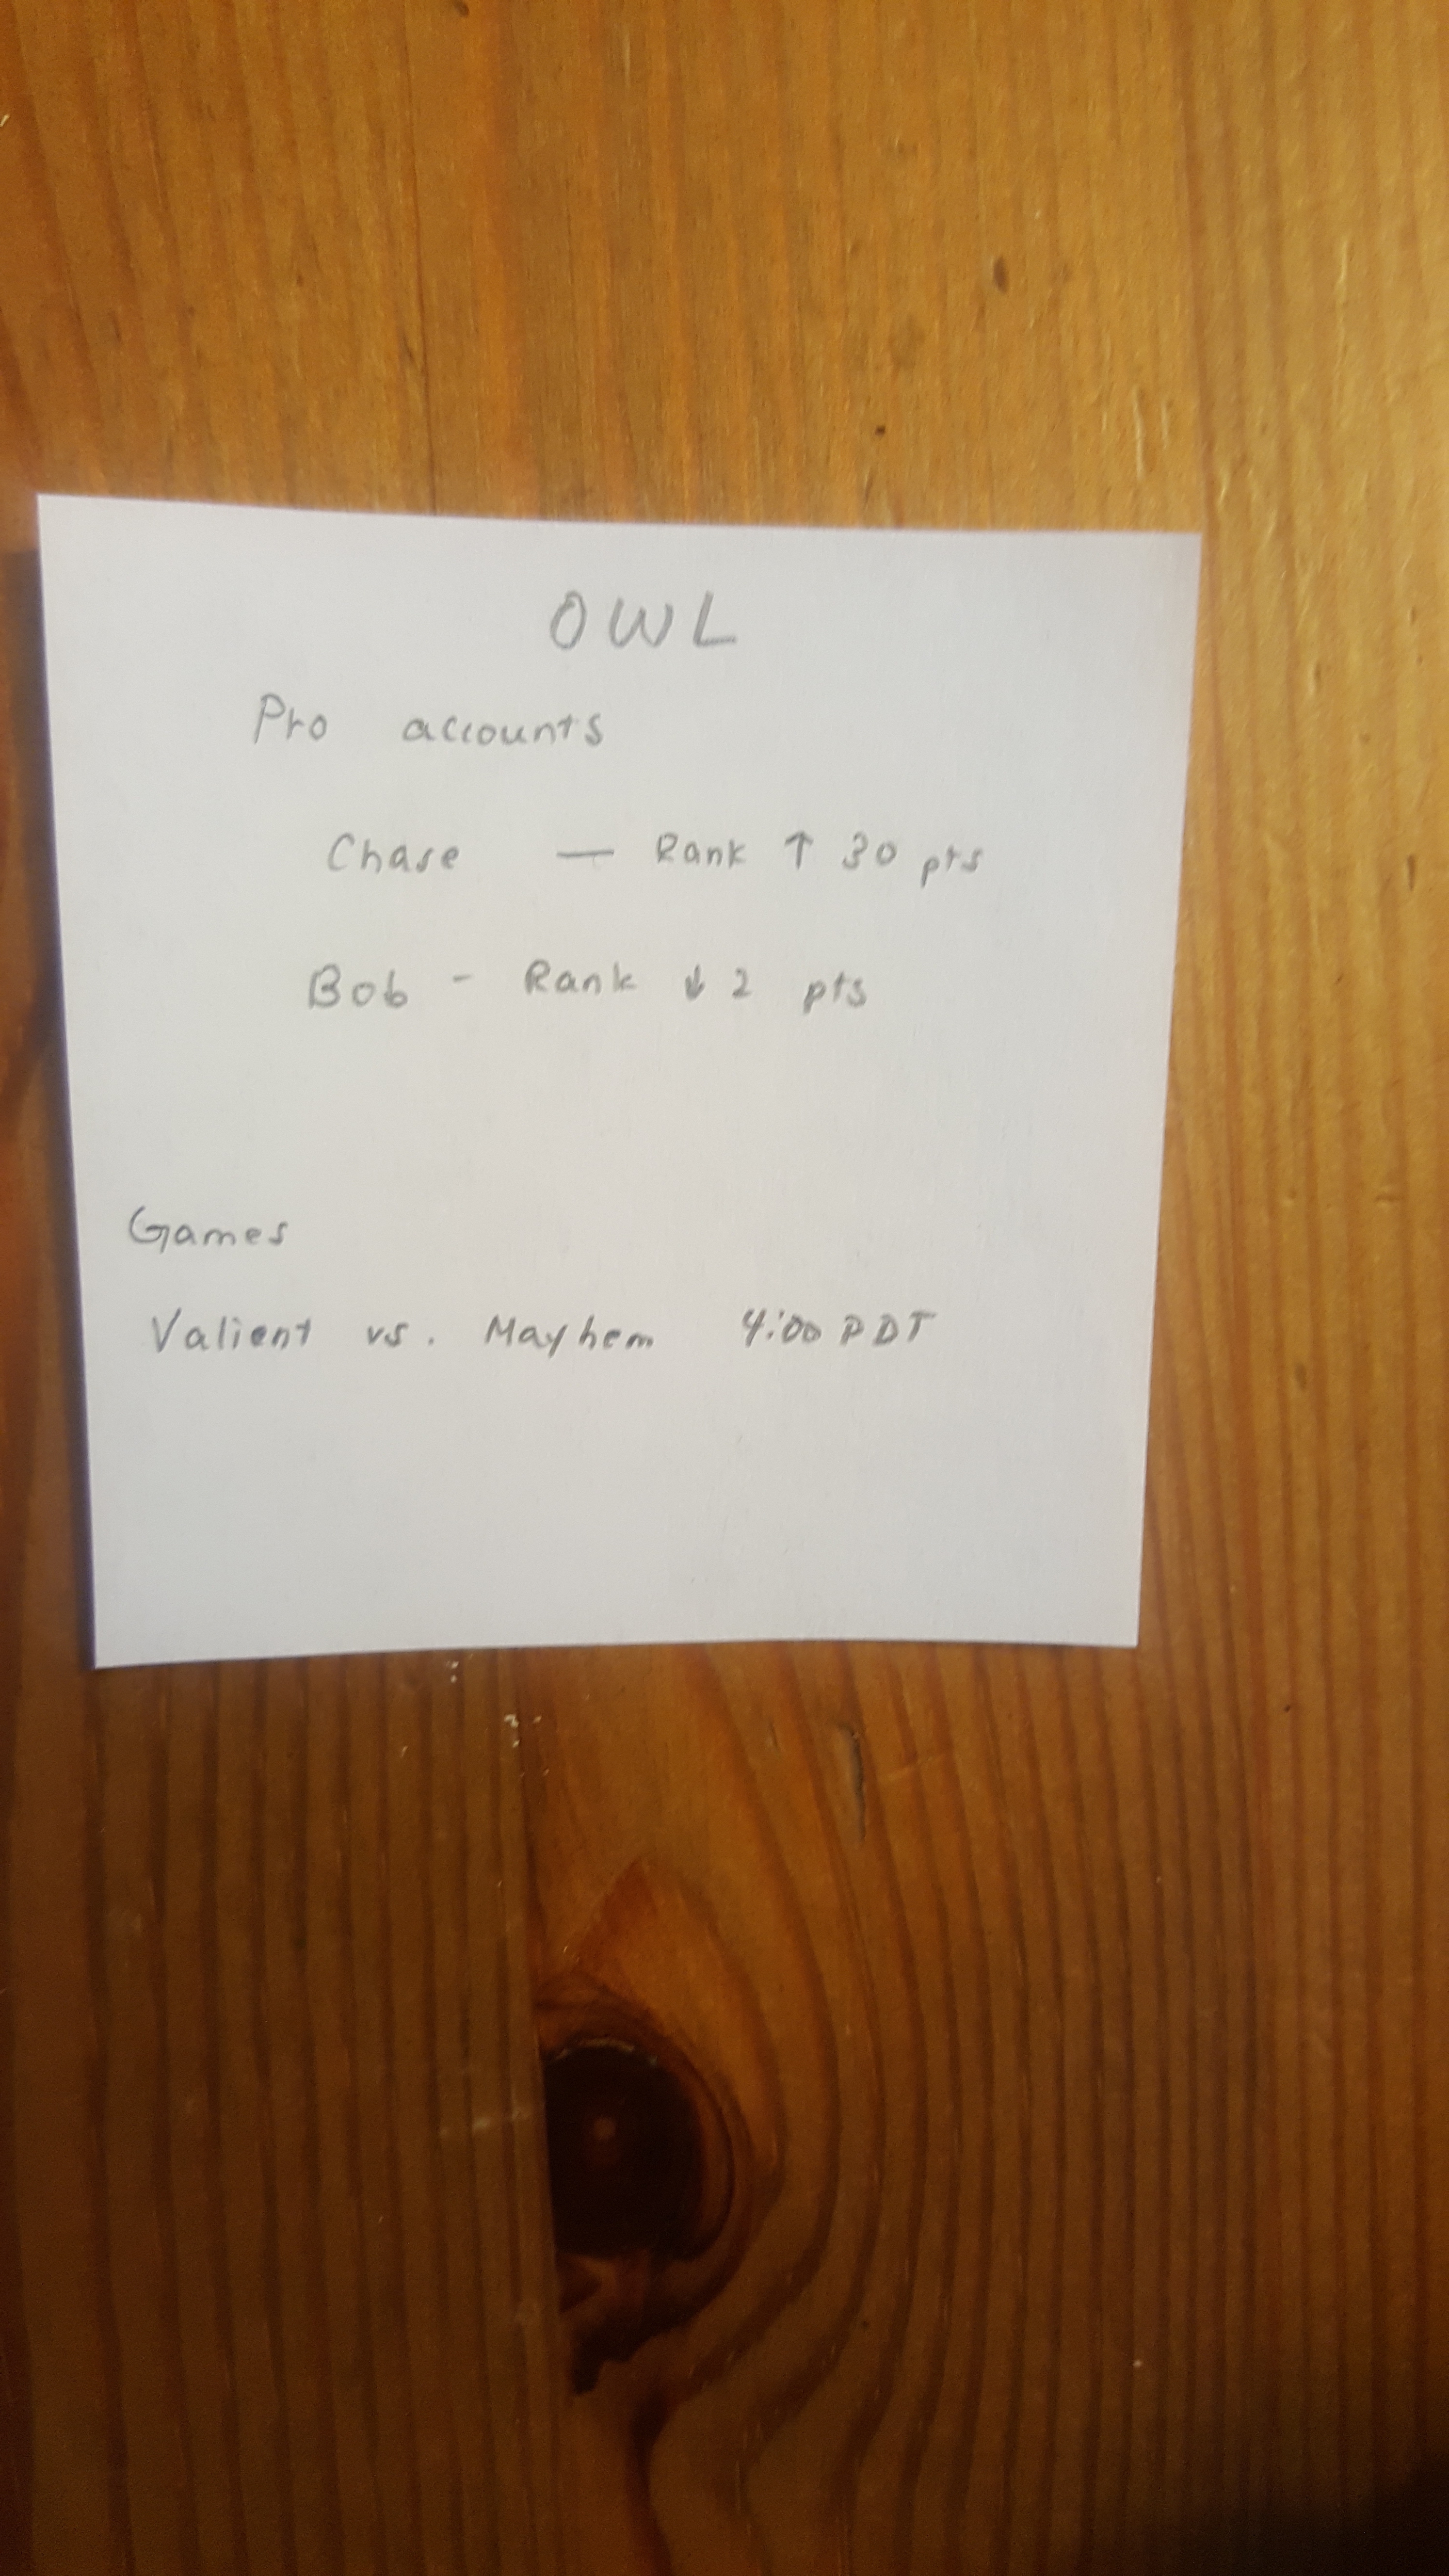 OWL
Pro accounts
Chase — Rank ↑ 30 pts
Bob - Rank ↓ 2 pts
Games
Valient vs. Mayhem 4:00 PDT